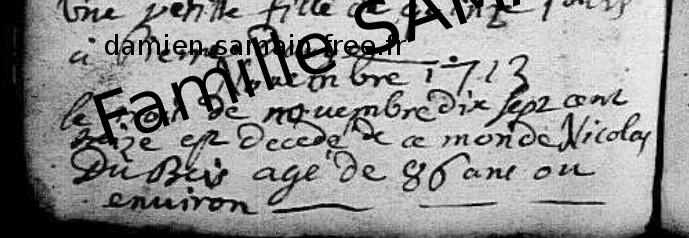 une petitte fille de
à
damien.samain.free.fr
Famille SAM
Nouembre 1713
le de nouembre dix sept cent
treize est decedé de ce monde Nicolas
Du Bois agé de 86 ans ou
enuiron